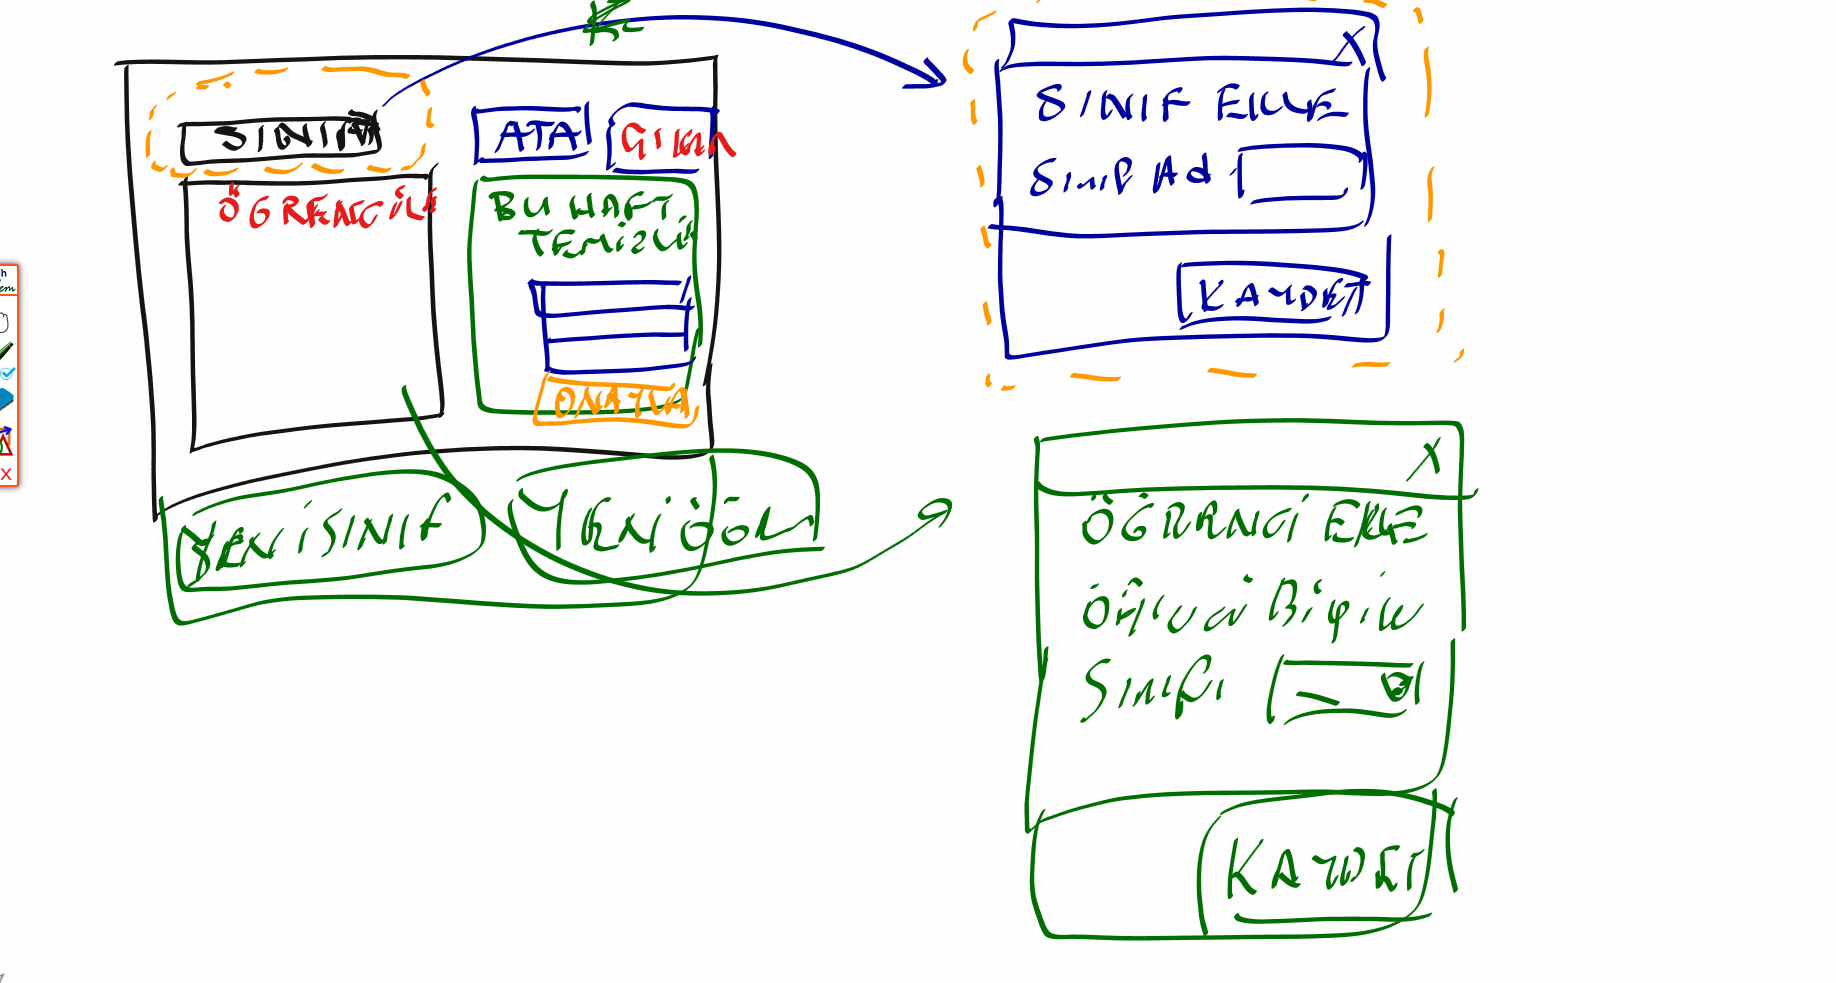 SINIF
ATA
ÖĞRENCİLE
BU HAFT
TEMİZLİ
ONAYLA
YENİ SINIF
YENİ ÖĞR
X
SINIF EKLE
Sınıf Ad
KAYDET
X
ÖĞRENCİ EKLE
Sınıfı
KAYDET